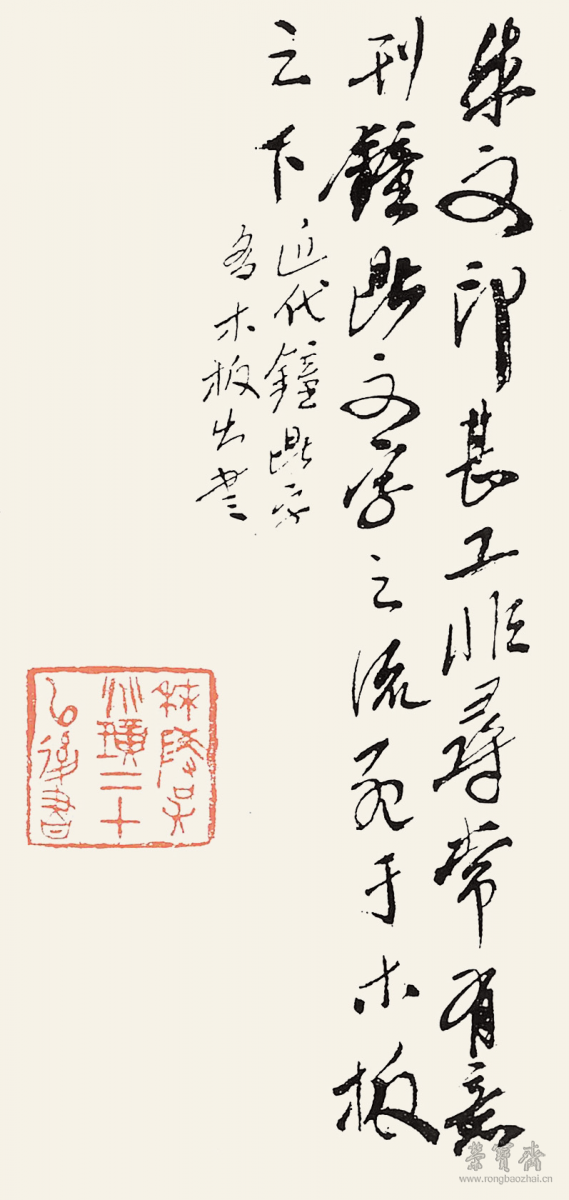 朱文印甚工非尋常有意
刊鐘鼎文字之流死于木板
之下
近代鐘鼎
木板出
秣陵吳
璜二十
後書
榮寶齋
www.rongbaozhai.cn